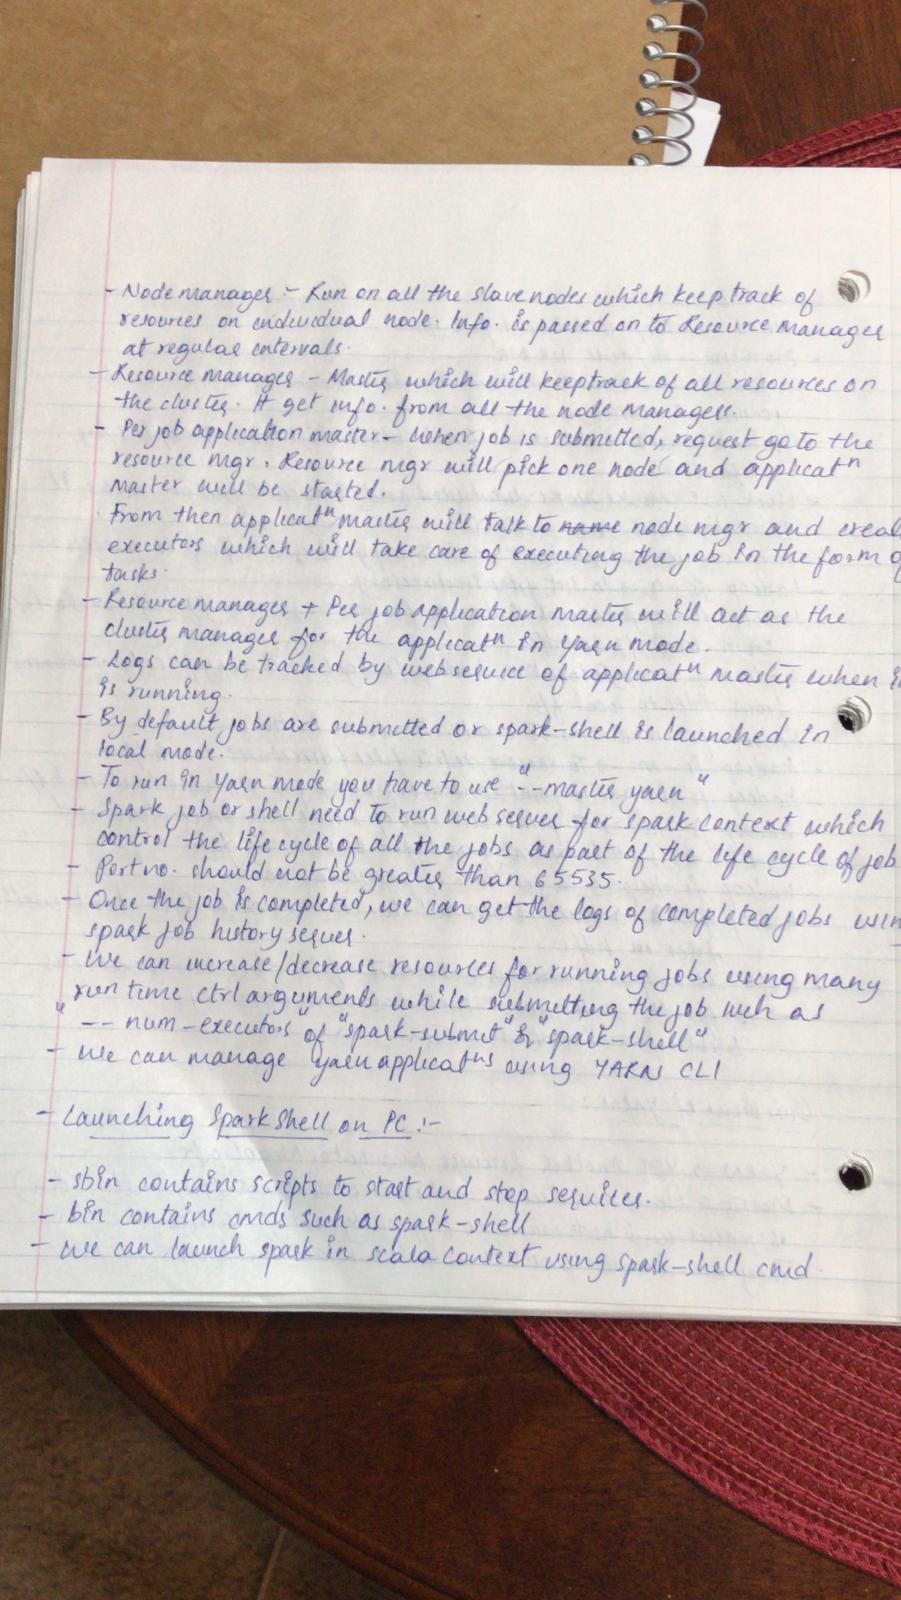 - Node manager :- Run on all the slave nodes which keep track of
resources on individual node. Info. is passed on to Resource Manager
at regular intervals.
- Resource manager - Master which will keep track of all resources on
the cluster. It get info. from all the node managers.
- Per job application master - When job is submitted, request go to the
resource mgr. Resource mgr will pick one node and applicatn
master will be started.
From then applicatn master will talk to name node mgr and creat
executors which will take care of executing the job in the form of
tasks.
- Resource manager + Per job application master will act as the
cluster manager for the applicatn in Yarn mode.
- Logs can be tracked by webservice of applicatn master when i
is running.
- By default jobs are submitted or spark-shell is launched in
local mode.
- To run in Yarn mode you have to use "--master yarn"
- Spark job or shell need to run web server for spark context which
control the life cycle of all the jobs as part of the life cycle of job
- Port no. should not be greater than 65535.
- Once the job is completed, we can get the logs of completed jobs usin
spark job history server.
- We can increase/decrease resources for running jobs using many
run time ctrl arguments while submitting the job such as
"-- num-executors" of "spark-submit" & "spark-shell"
- We can manage yarn applicatns using YARN CLI
- Launching Spark Shell on PC :-
- sbin contains scripts to start and stop services.
- bin contains cmds such as spark-shell
- We can launch spark in scala context using spark-shell cmd.